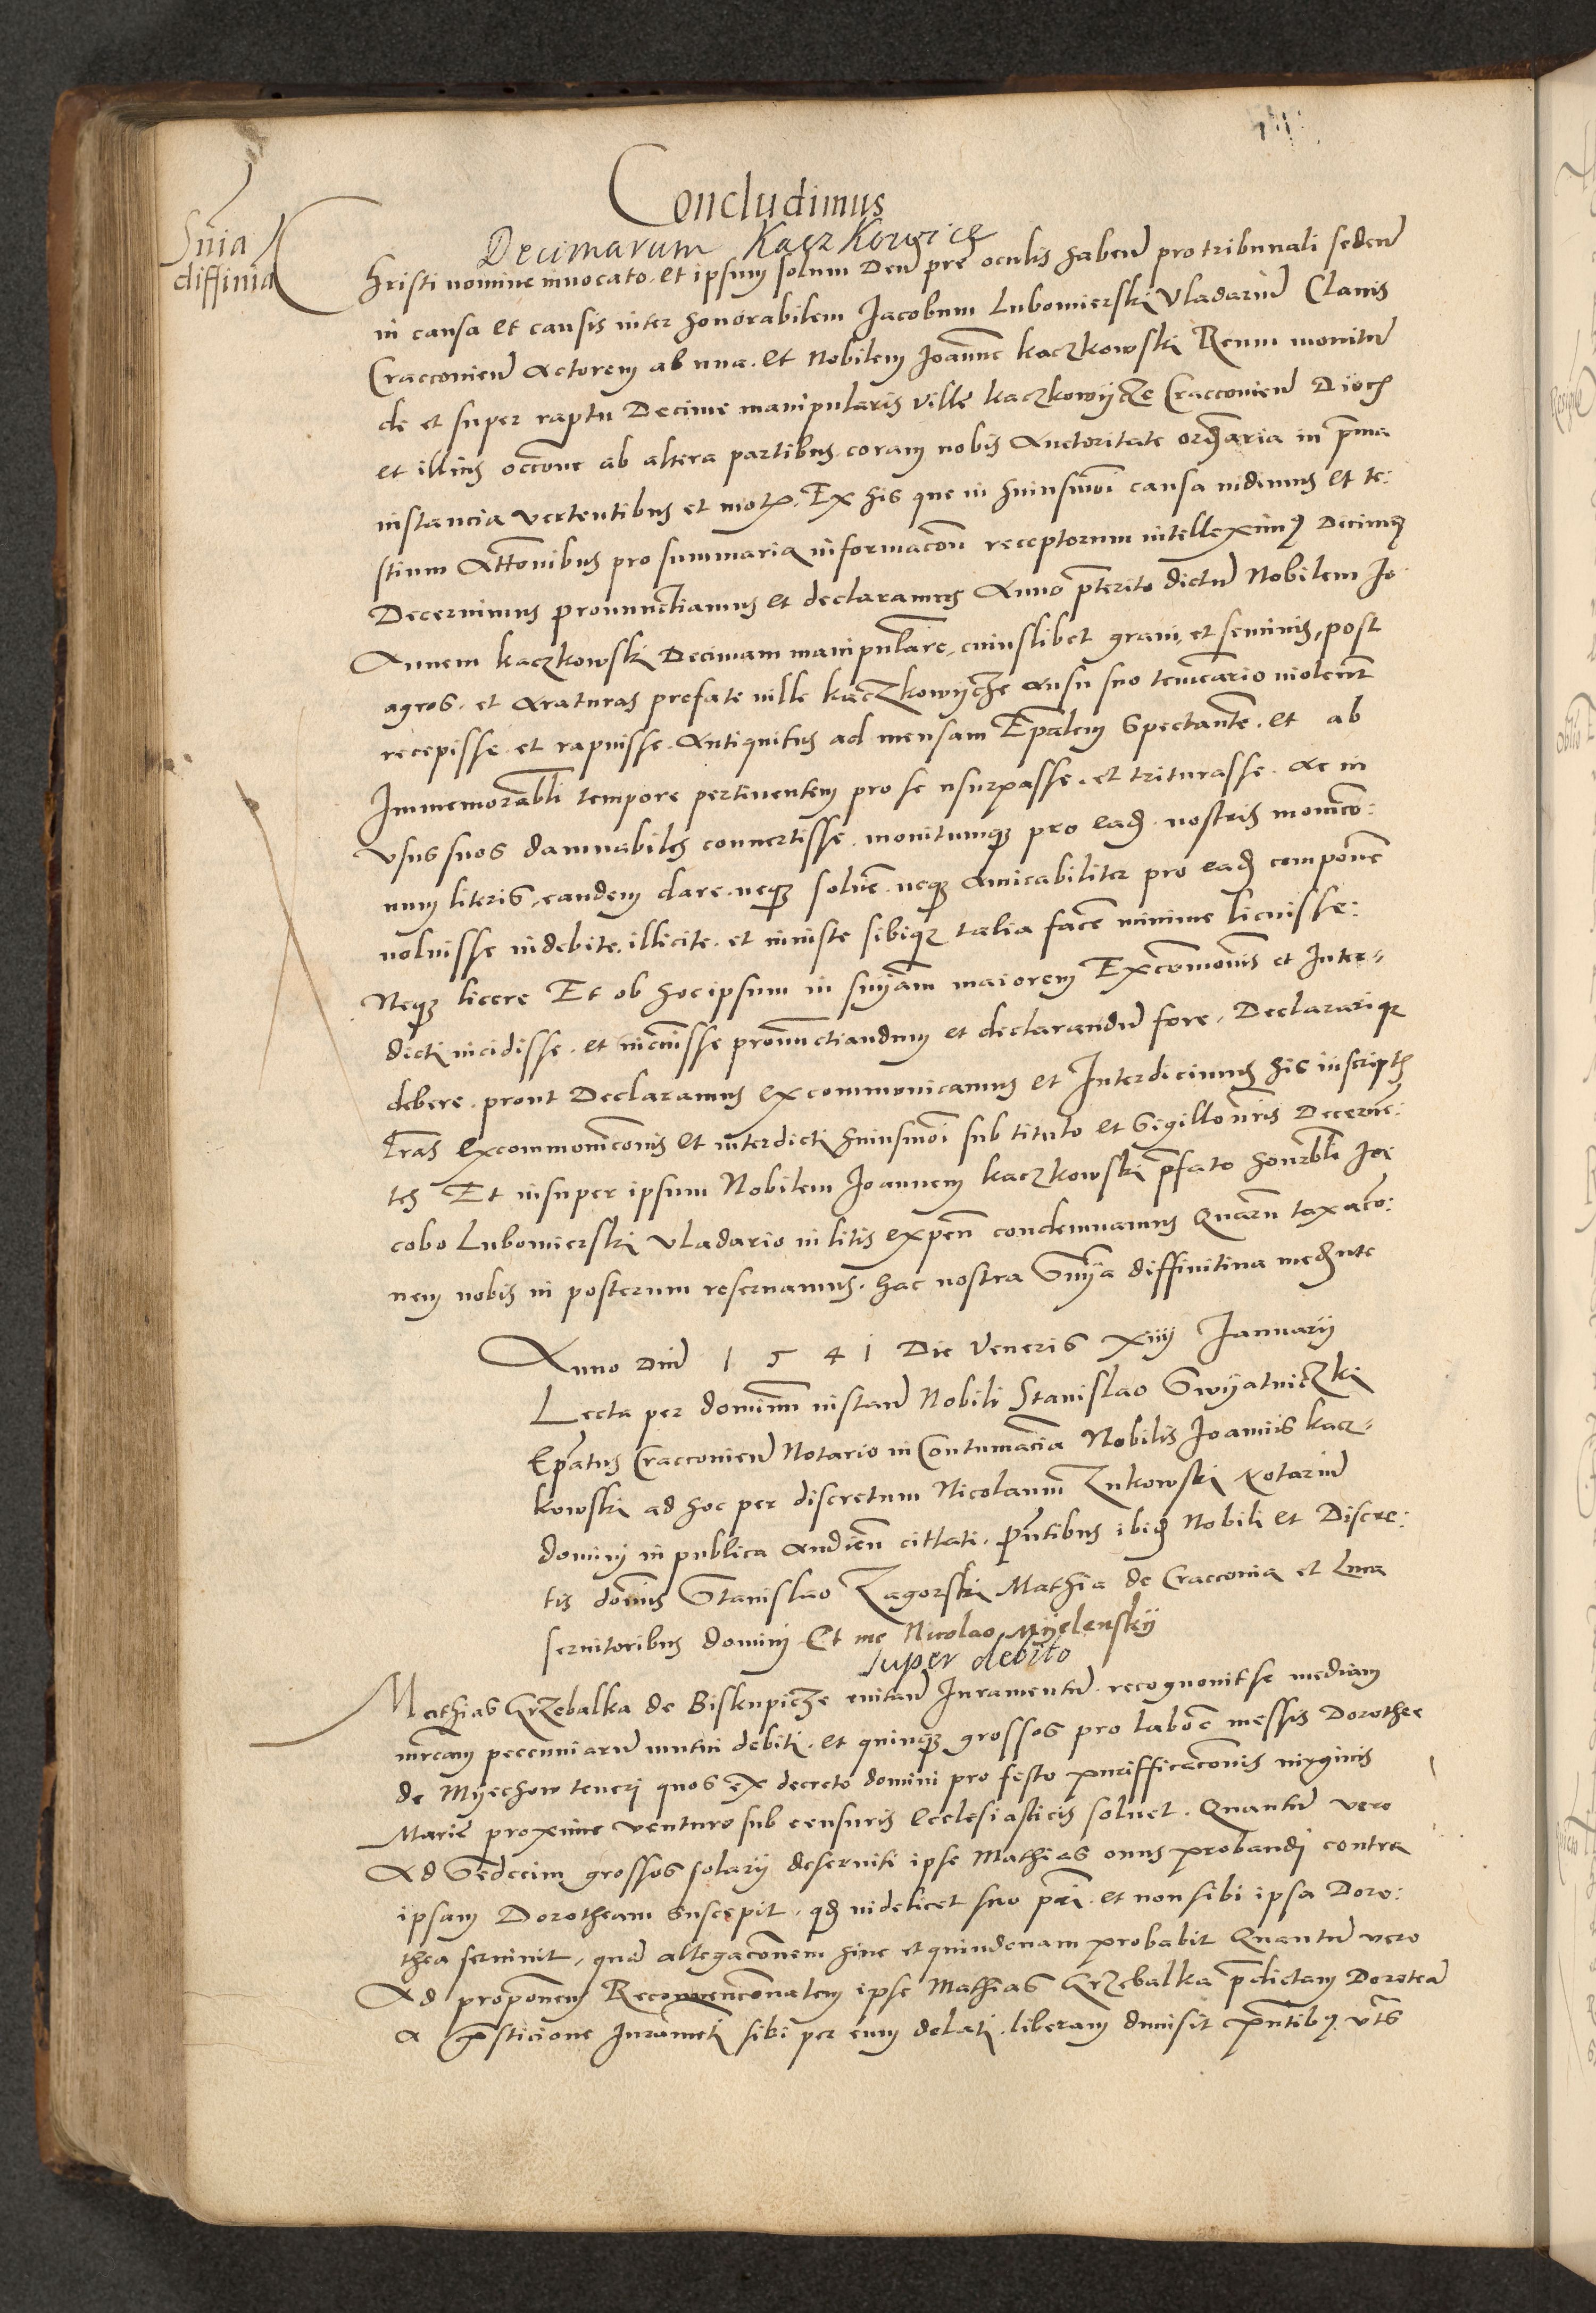 Concludimus
Decimarum Kaczkowicze
Snia
diffinia
Christi nomine invocato et ipsum solum Deu pre oculis haben pro tribunali seden
in causa et causis inter honorabilem Jacobum Lubomierski Vladariu Clavis
Cracconien Actorem ab una et Nobilem Joanne Kaczkowski Reum monitu
de et super raptu Decime manipularis ville Kaczkowycze Cracconien Dioc
et illius occone ab altera partibus coram nobis Auctoritate ordnaria in prima
instancia vertentibus et mot Ex his que in huiusmoi causa vidimus et te:
stium Attonibus pro summaria informacon receptorum intelleximus Dicimus
Decernimus pronunctiamus et declaramus Anno preterito dictu Nobilem Jo
Annem Kaczkowski Decimam manipulare cuiuslibet grani et seminis post
agros et Araturas prefate ville Kaczkowycze Ausu suo temerario violent
recepisse et rapuisse Antiquitus ad mensam Epalem Spectante et ab
Immemorabli tempore pertinentem pro se usurpasse et triturasse ac in
Usus suos damnabiles convertisse monitumque pro ead nostris monico:
num literis eandem dare neque solve neque Amicabiliter pro ead compone
noluisse indebite illicite et iniuste sibique talia face minime licuisse:
Neque licere Et ob hoc ipsum in snyam maiorem Excommonis et Inter
dicti incidisse et incurisse pronunctiandum et declarandu fore Declararique
debere prout Declaramus excommonicamus et Interdicimus his in scriptis
Lras excommoniconis et interdicti huiusmoi sub titulo et Sigillo nris Decerne:
tes Et insuper ipsum Nobilem Joannem Kaczkowski pfato honorabli Ja
cobo Lubomierski Vladario in litis expen condemnamus Quaru taxaco:
nem nobis in posterum reservamus hac nostra Snya diffinitiva mednte
Anno Dni 1541 Die Veneris xiiij Januarij
Lecta per dominum instan Nobili Stanislao Swyatniczki
Epatus Cracconien Notario in Contumacia Nobilis Joannis Kacz
kowski ad hoc per discretum Nicolaum Zukowski Notariu
domini in publica Audien cittati Pntibus ibid Nobili et Discre:
tis domis Stanislao Zagorski Mathia de Cracconia et Luca
servitoribus domini Et me Nicolao Myelensky
super debito
Mathias Grzebalka de Biskupicze evitan Juramentu recognovit se mediam
mrcam peccuniaru mutui debiti et quinque grossos pro labore messis Dorothee
de Myechow teneri quos ex decreto domini pro festo purifficaconis virginis
Marie proxime venturo sub censuris Ecclesiasticis solvet Quantu vero
Ad Sedecim grossos solarij deserviti ipse Mathias onus probandi contra
ipsam Dorotheam Suscepit qd videlicet suo pri et non sibi ipsa Doro:
thea servivit qua allegaconem hinc et quindenam probabit Quantu vero
Ad proponem Reconvenconalem ipse Mathias Grzebalka pdictam Dorotea
a prsticione Juramenti sibi per eum delati liberam dimisit pntibus uts